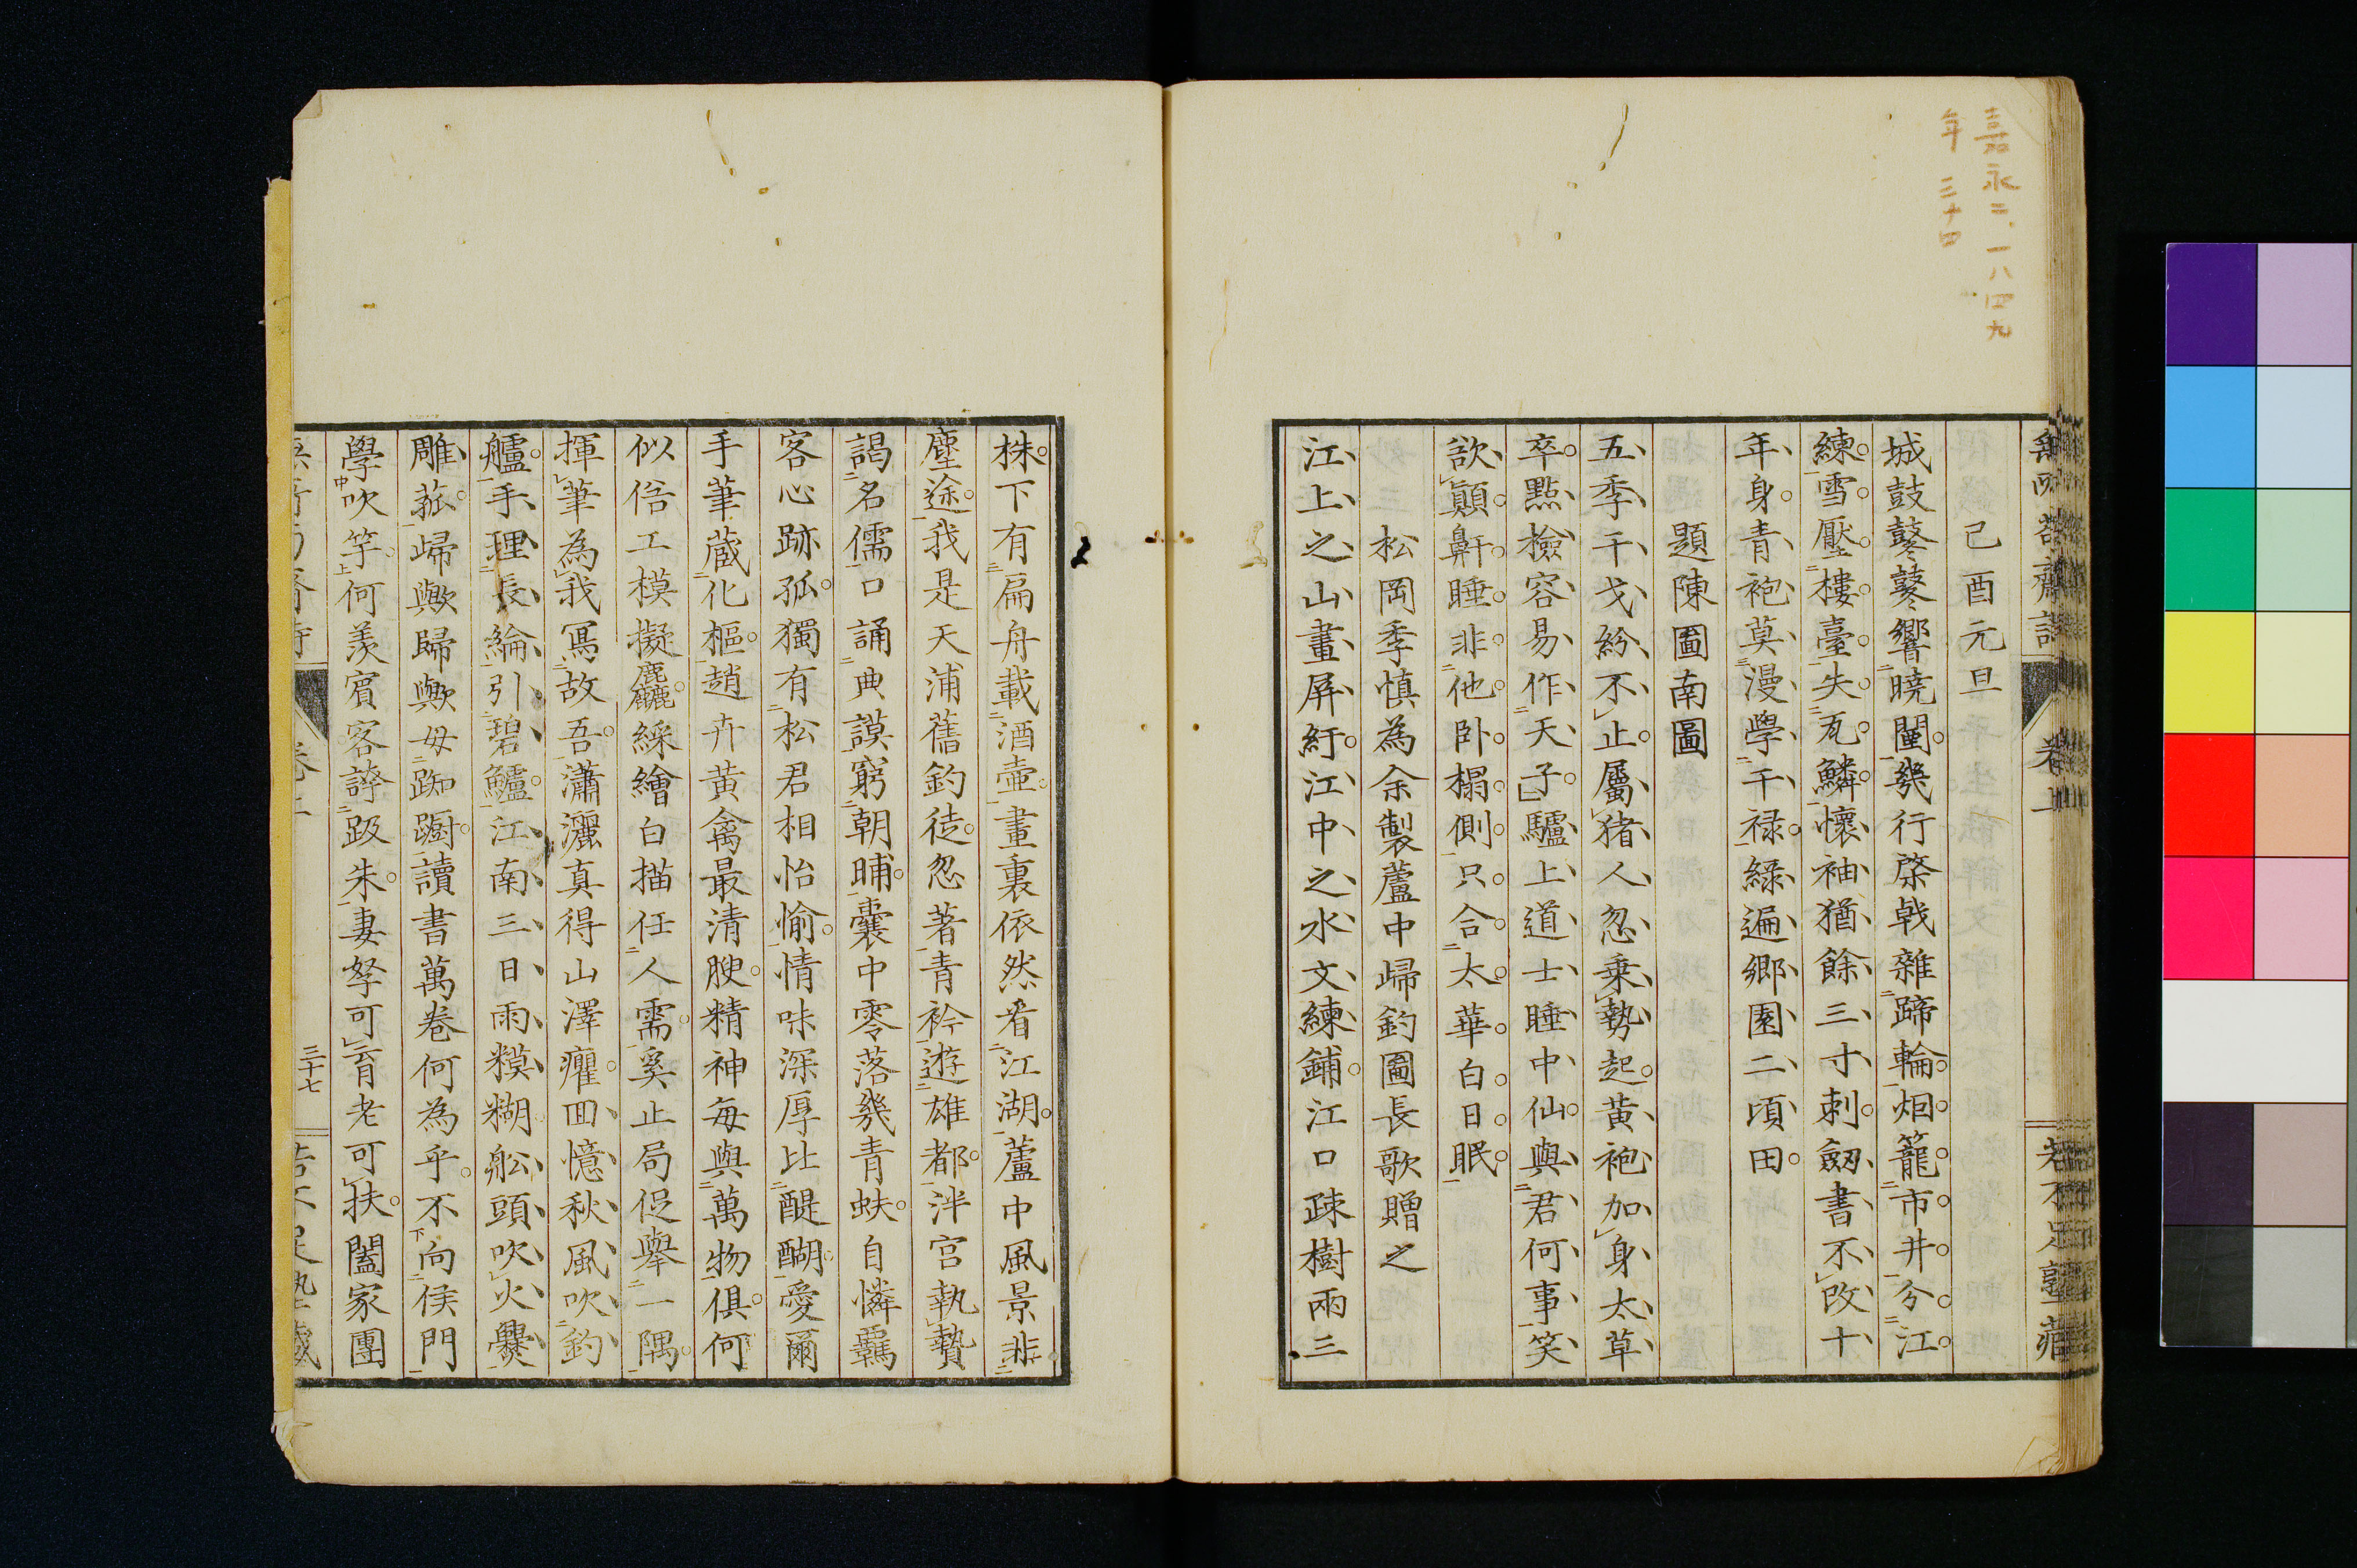 嘉永二、一八四九
年 三十四
己酉元旦
城鼓鼕鼕響曉闉幾行棨戟雜蹄輪炬籠市井分江
練雪壓樓臺失瓦鱗懷袖猶餘三寸刺劔書不改十
年身青袍莫漫學干祿綠遍鄉園二頃田
題陳圖南圖
五季干戈紛不止屬豬人忽乘勢起黃袍加身太草
卒點檢容易作天子驢上道士睡中仙與君何事笑
欲顛鼾睡非他臥榻側只合太華白日眠
松岡季慎為余製蘆中歸釣圖長歌贈之
江上之山畫屏紆江中之水文練鋪江口疎樹兩三
株下有扁舟載酒壺畫裏依然看江湖蘆中風景非
塵途我是天浦舊釣徒忽著青衿遊雄都泮宮執贄
謁名儒口誦典謨窮朝晡囊中零落幾青蚨自憐羈
客心跡孤獨有松君相怡愉情味深厚比醍醐愛爾
手筆蔵化樞趙卉黃禽最清腴精神每與萬物俱何
似俗工模擬麤綵繪白描任人需奚止局促舉一隅
揮筆為我寫故吾瀟灑真得山澤癯回憶秋風吹釣
艫手理長綸引碧鱸江南三日雨糢糊舩頭吹火爨
雕菰歸歟歸歟毋踟躕讀書萬卷何為乎不向侯門
學吹竽何羨賓客誇趿朱妻孥可育老可扶闔家團
卷上
三十七